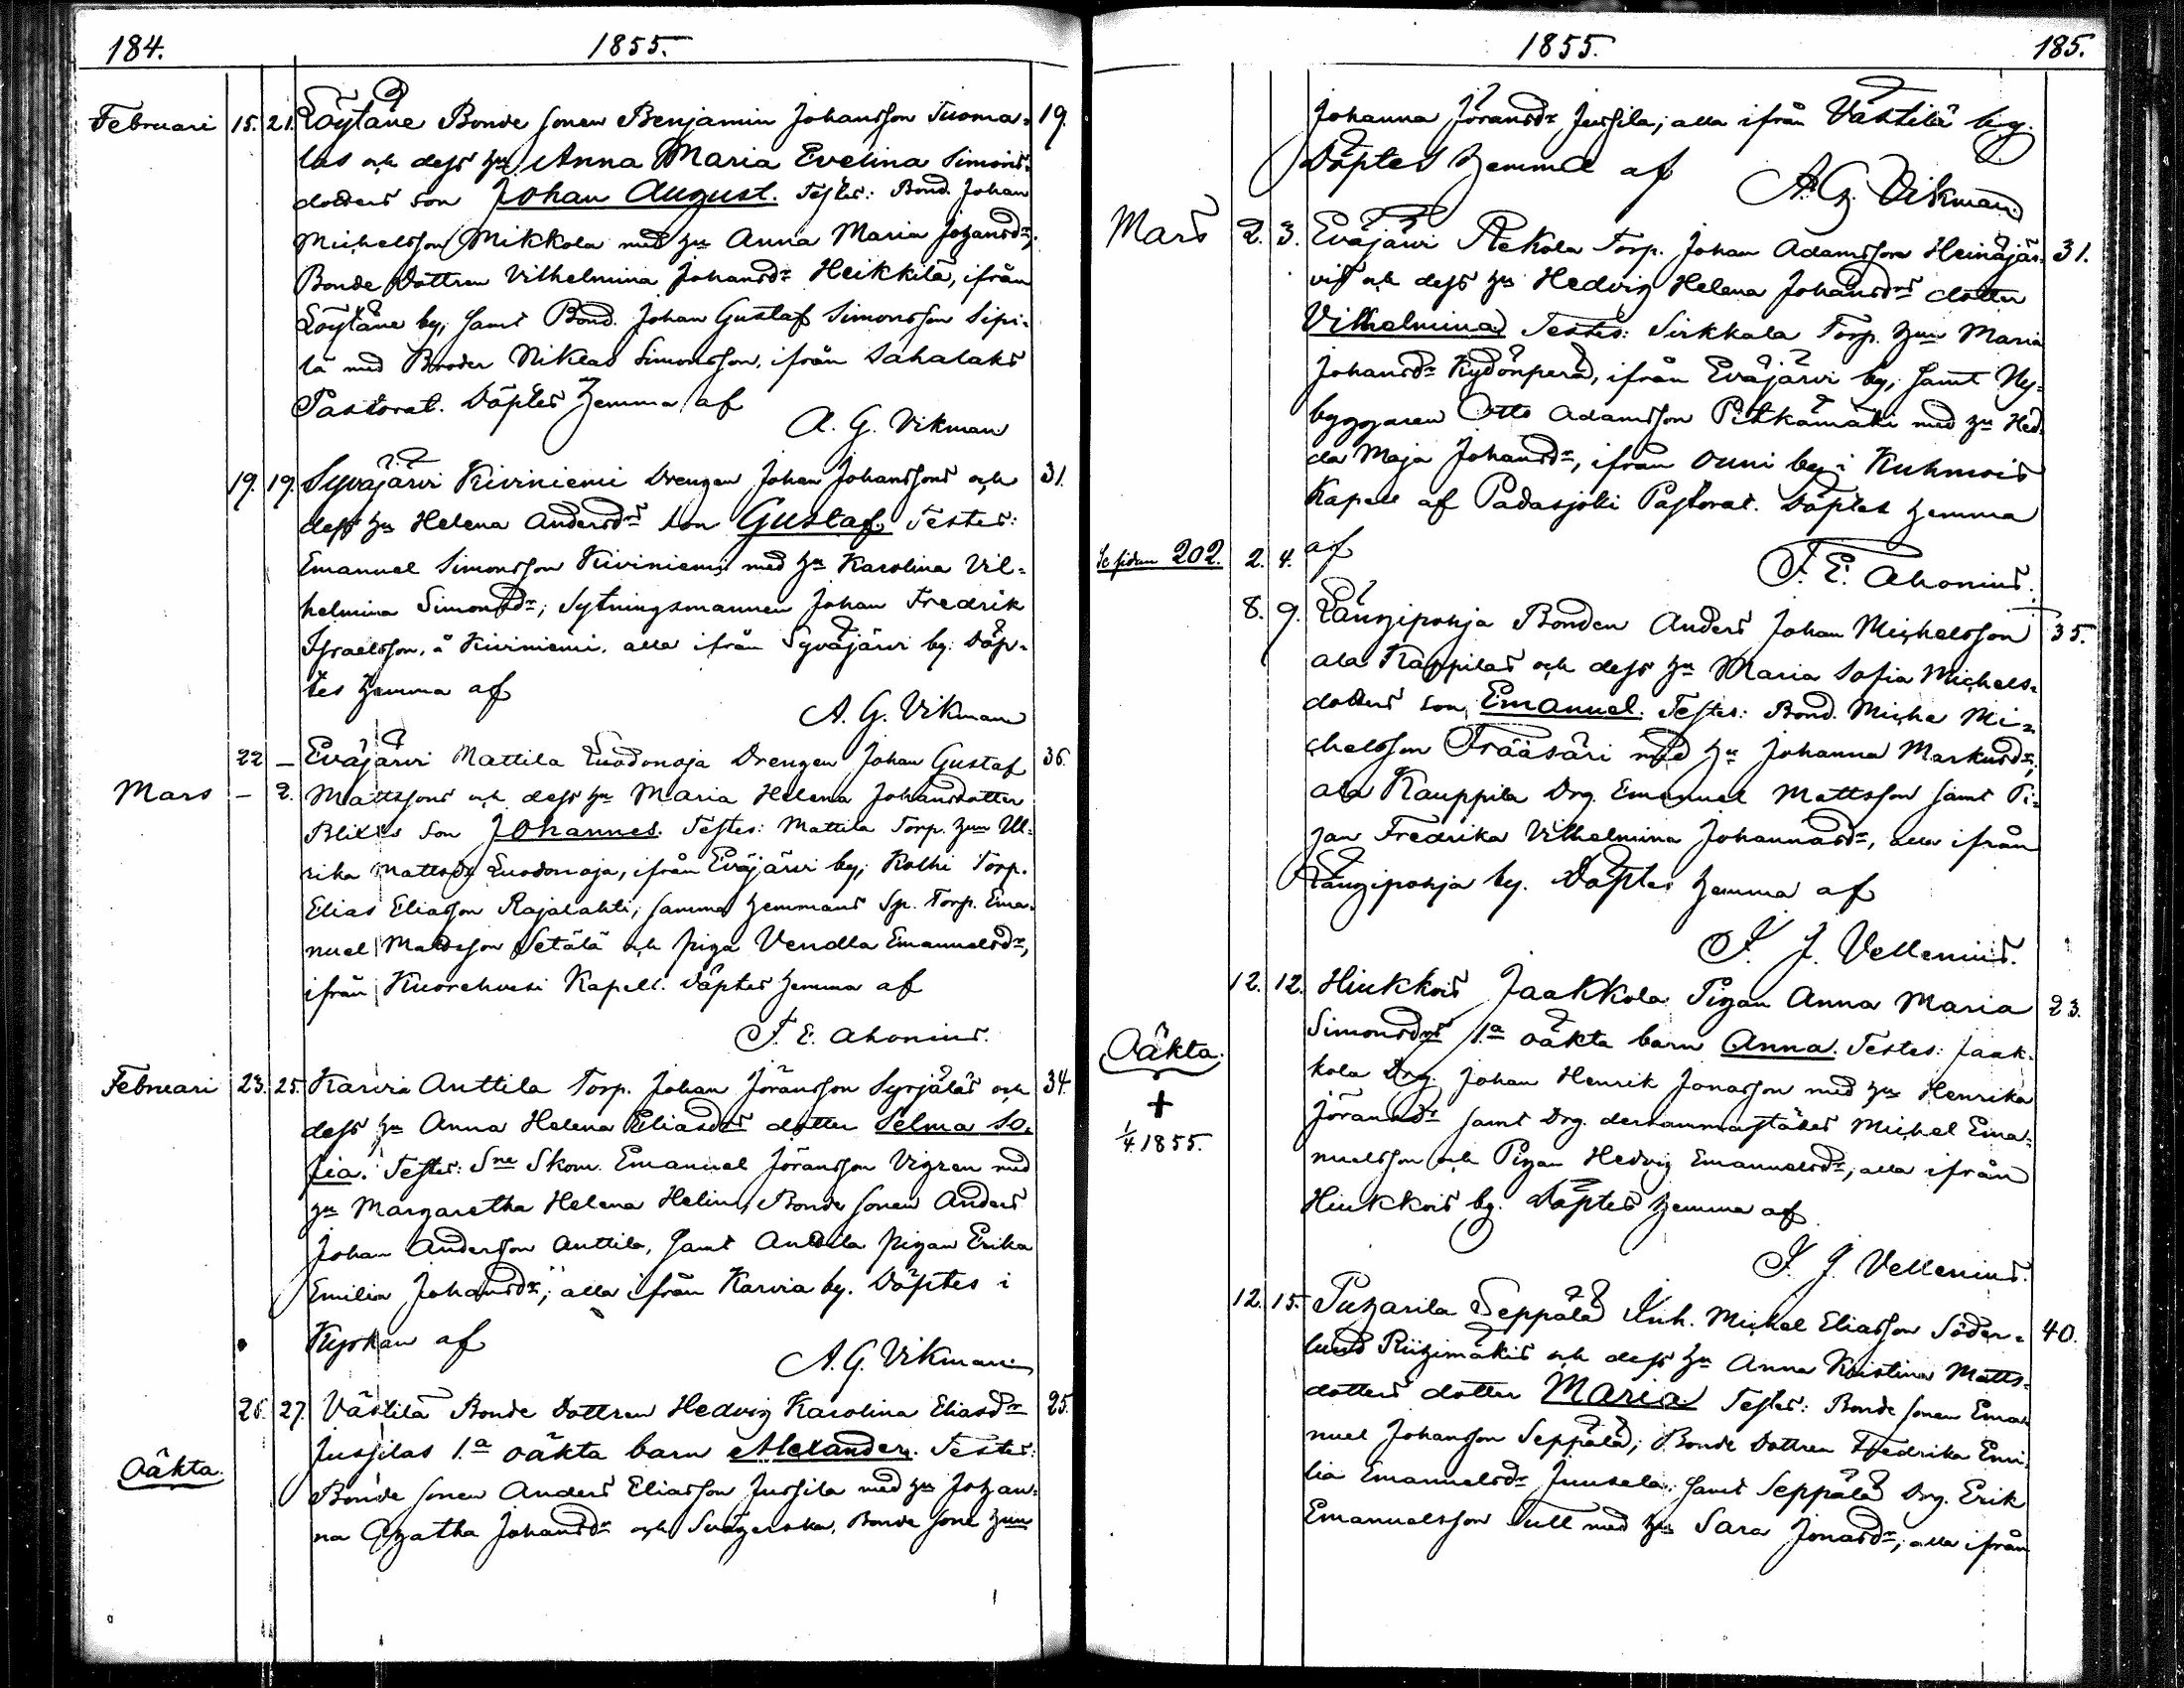 184. 1855.
Februari 15. 21. Löytäne Bonde sonen Benjamin Johansson Tuoma- 19.
las och dess hu Anna Maria Evelina Simons-
dotters son Johan August. Testes: Bond. Johan
Michelsson Mikkola med hu Anna Maria Johansdr;
Bonde Dottren Vilhelmina Johansdr Heikkilä, ifrån
Löytäne by; samt Bond. Johan Gustaf Simonsson Sipi-
lä med Broder Niklas Simonsson, ifrån Sahalaks
Pastorat. Döptes hemma af
A. G. Vikman
19. 19. Syväjärvi Kiviniemi Drengen Johan Johanssons och 31.
dess hu Helena Andersdrs son Gustaf. Testes:
Emanuel Simonsson Kiviniemi med hu Karolina Vil-
helmina Simonsdr; Sytningsmannen Johan Fredrik
Israelsson, å Kiviniemi, alla ifrån Syväjärvi by. Döp-
tes hemma af
A. G. Vikman
22 — Eväjärvi Mattila Luodonoja Drengen Johan Gustaf 36.
Mars — 2. Mattssons och dess hu Maria Helena Johansdotter
Blixts son Johannes. Testes: Mattila Torp. hun Ul-
rika Mattsdr Luodonoja, ifrån Eväjärvi by; Kolhi Torp.
Elias Eliasson Rajalahti; samma hemmans Sp. Torp. Ema-
nuel Mattsson Setälä och piga Vendla Emanuelsdr,
ifrån Kuorehvesi Kapell. Döptes hemma af
F. E. Ahonius.
Februari 23. 25. Karvia Anttila Torp. Johan Jöransson Syrjäläs och 34.
dess hu Anna Helena Eliasdrs dotter Selma So-
fia. Testes: Sne Skom. Emanuel Jöransson Vigren med
hu Margaretha Helena Helin, Bonde sonen Anders
Johan Andersson Anttila, samt Anttila pigan Erika
Emilia Johansdr; alla ifrån Karvia by. Döptes i
Kyrkan af
A. G. Vikman
26. 27. Västilä Bonde Dottren Hedvig Karolina Eliasdr 25.
Jussilas 1.a oäkta barn Alexander. Testes:
Oäkta.
Bonde sonen Anders Eliasson Jussila med hu Johan-
na Agatha Johansdr och Svägerska, Bonde sone hun
1855. 185.
Johanna Jöransdr Jussila; alla ifrån Västilä by.
Döptes hemma af
A. G. Vikman
Mars 2. 3. Eväjärvi Rekola Torp. Johan Adamsson Heinäjär- 31.
vis och dess hu Hedvig Helena Johansdrs dotter
Vilhelmina Testes: Sirkkala Torp. hun Maria
Johansdr Kydönperä, ifrån Eväjärvi by, samt Ny-
byggaren Otto Adamsson Pitkämäki med hu Hed-
da Maja Johansdr, ifrån Ouni by i Kuhmois
Kapell af Padasjoki Pastorat. Döptes hemma
af
F. E. Ahonius.
Se sidan 202. 2. 4.
8. 9. Längipohja Bonden Anders Johan Michelsson 35.
ala Käppiläs och dess hu Maria Sofia Michels-
dotters son, Emanuel. Testes: Bond. Michel Mi-
chelsson Trääsäri med hu Johanna Markusdr;
ala Kauppila Drg. Emanuel Mattsson samt Pi-
gan Fredrika Vilhelmina Johannasdr, alla ifrån
Längipohja by. Döptes hemma af
F. J. Vellenius.
12. 12. Hiukkois Jaakkola Pigan Anna Maria 23.
Simonsdrs 1.a oäkta barn Anna. Testes: Jaak-
Oäkta.
kola Drg. Johan Henrik Jonasson med hu Henrika
+
Jöransdr samt Drg. dersammastädes Michel Ema-
1/4 1855.
nuelsson och Pigan Hedvig Emanuelsdr; alla ifrån
Hiukkois by. Döptes hemma af
F. J. Vellenius.
12. 15. Puharila Seppälä Inh. Michel Eliasson Söder- 40.
lund Riihimäkis och dess hu Anna Kristina Matts-
dotters dotter Maria Testes: Bonde sonen Ema-
nuel Johansson Seppälä; Bonde Dottren Fredrika Emi-
lia Emanuelsdr Juusela; samt Seppälä Drg. Erik
Emanuelsson Tull med hu Sara Jonasdr; alla ifrån